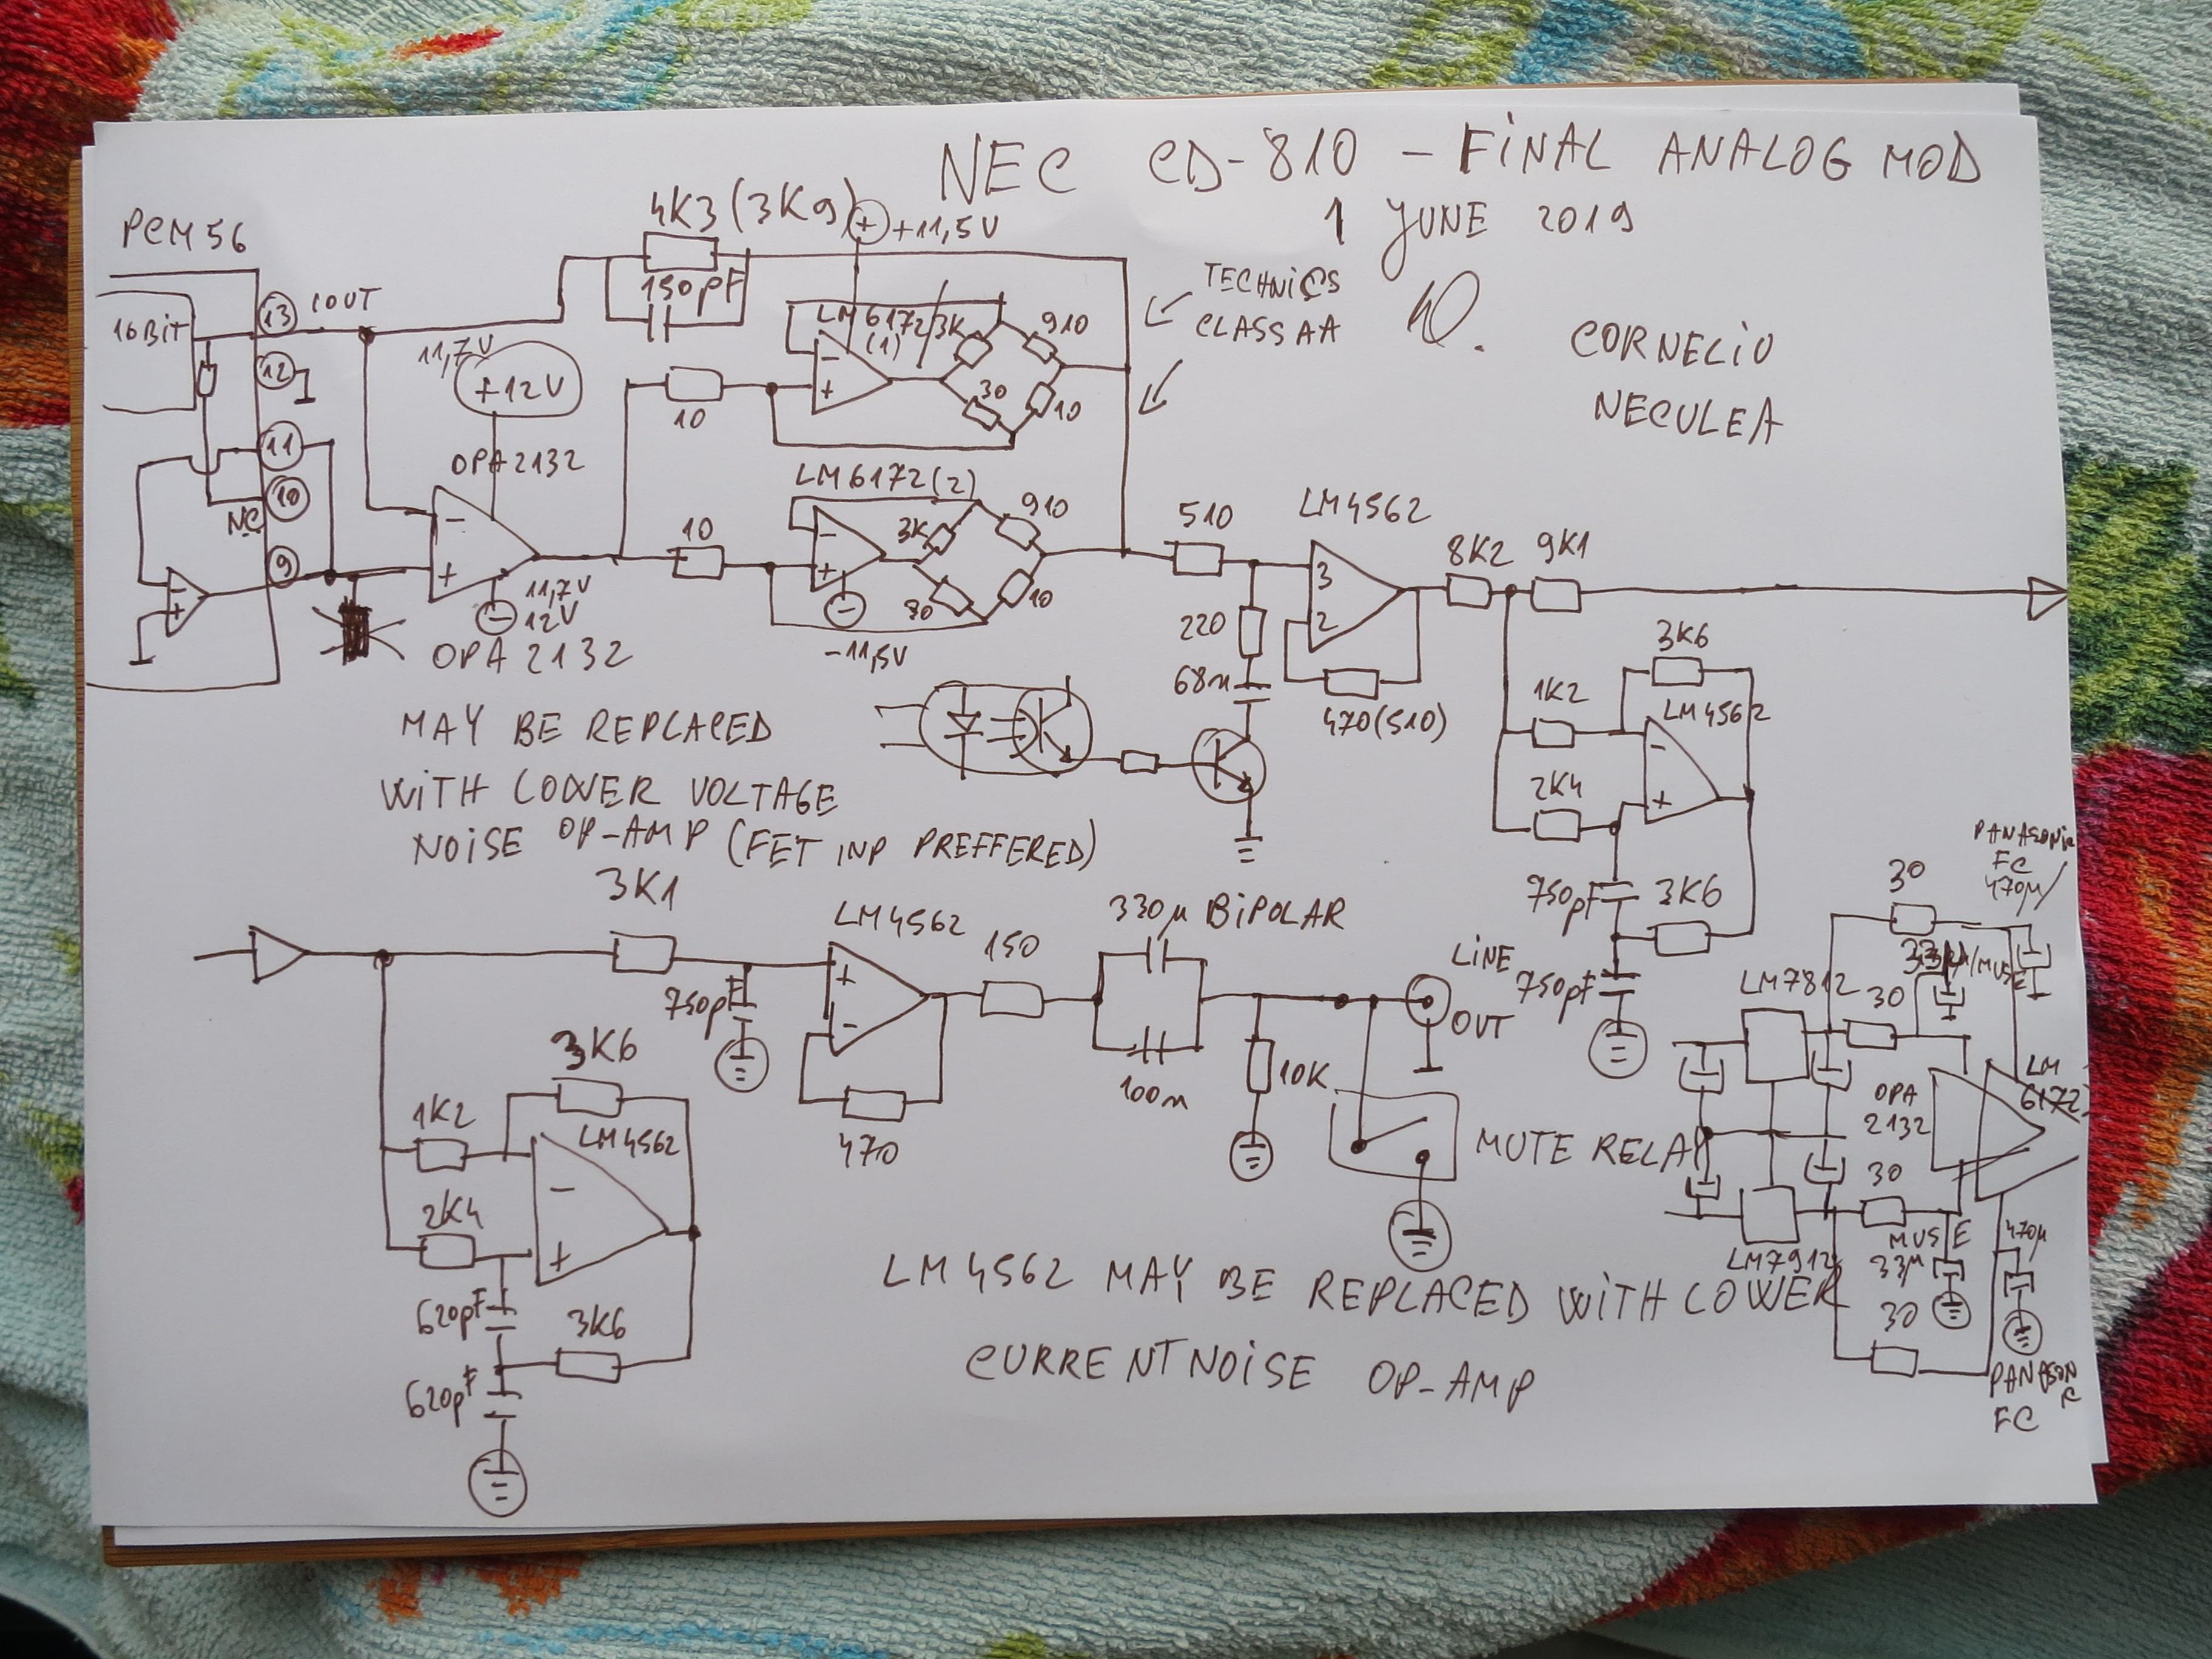 NEC CD-810 - FINAL ANALOG MOD
1 JUNE 2019
CORNELIU
NECULEA
TECHNICS
CLASS AA
PCM56
16BIT
13
IOUT
12
11
10
NC
9
4K3 (3K9)
150pF
+ +11,5V
11,7V
+12V
OPA2132
-
+
11,7V
- 12V
10
LM6172
(1)
-
+
3K
910
30
10
LM6172(2)
10
-
+
3K
910
30
10
-
-11,5V
510
LM4562
3
2
470(510)
220
68n
8K2
9K1
1K2
2K4
3K6
LM4562
-
+
750pF
3K6
750pF
OPA2132
MAY BE REPLACED
WITH LOWER VOLTAGE
NOISE OP-AMP (FET INP PREFFERED)
3K1
750pF
LM4562
+
-
470
150
330µ BIPOLAR
100n
10K
LINE
OUT
MUTE RELAY
1K2
2K4
3K6
LM4562
-
+
620pF
3K6
620pF
PANASONIC
FC
470µ
30
33µ/MUSE
LM7812
30
OPA
2132
LM
6172
30
LM7912
MUSE
33µ
470µ
30
PANASONIC
FC
LM4562 MAY BE REPLACED WITH LOWER
CURRENT NOISE OP-AMP